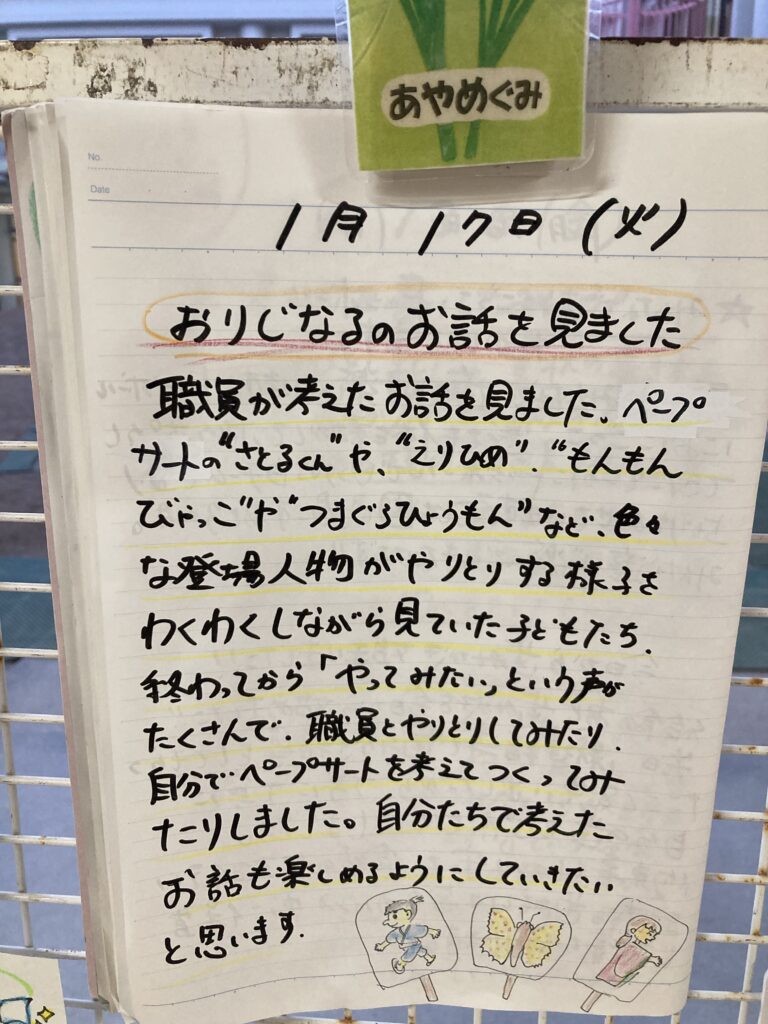 あやめぐみ
No.
Date
1月 17日 (火)
おりじなるのお話を見ました
職員が考えたお話を見ました。ペープ
サートの"さとるくん"や、"えりひめ"、"もんもん
びゃっこ"や"つまぐろひょうもん"など、色々
な登場人物がやりとりする様子を
わくわくしながら見ていた子どもたち。
終わってから「やってみたい」という声が
たくさんで、職員とやりとりしてみたり、
自分でペープサートを考えてつくってみ
たりしました。自分たちで考えた
お話も楽しめるようにしていきたい
と思います。